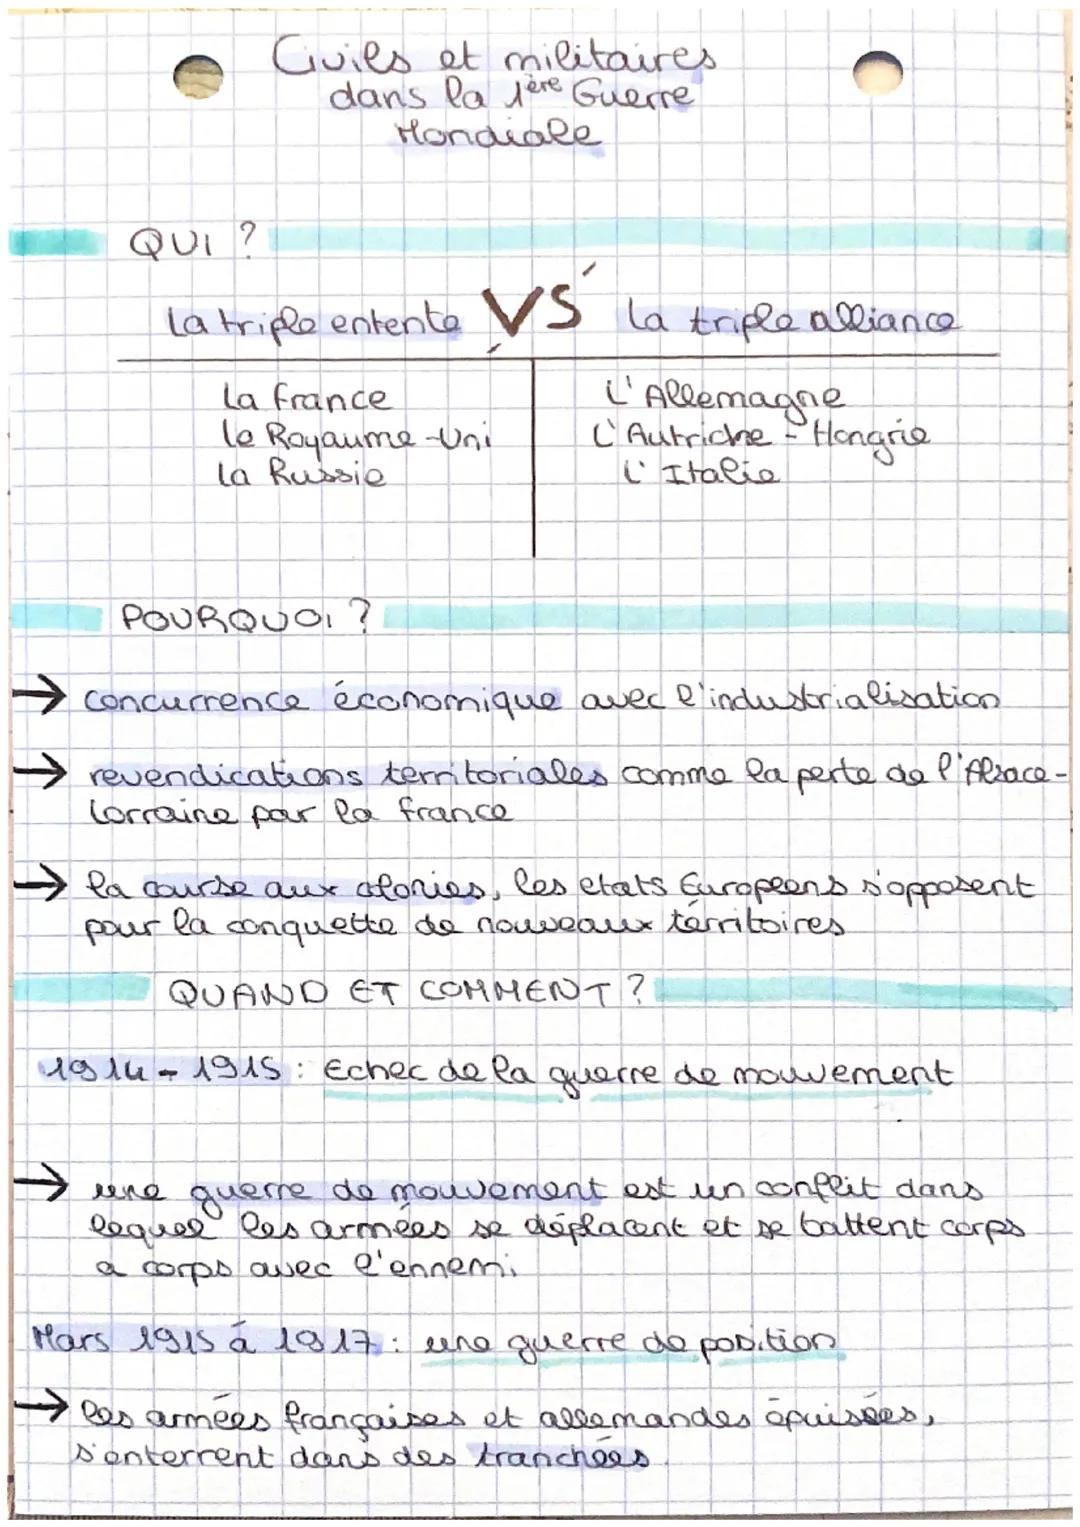 Civils et militaires
dans la 1ère Guerre
Mondiale
QUI ?
La triple entente VS la triple alliance
La france
le Royaume-Uni
la Russie
L'Allemagne
L'Autriche-Hongrie
L'Italie
POURQUOI ?
→ concurrence économique avec l'industrialisation
→ revendications territoriales comme la perte de l'Alsace-
Lorraine par la france
→ la course aux colonies, les etats Européens s'opposent
pour la conquette de nouveaux térritoires
QUAND ET COMMENT ?
1914-1915 : Echec de la guerre de mouvement
→ une guerre de mouvement est un conflit dans
lequel les armées se déplacent et se battent corps
a corps avec l'ennemi
Mars 1915 à 1917 : une guerre de position
→ les armées françaises et allemandes épuisées,
s'enterrent dans des tranchées